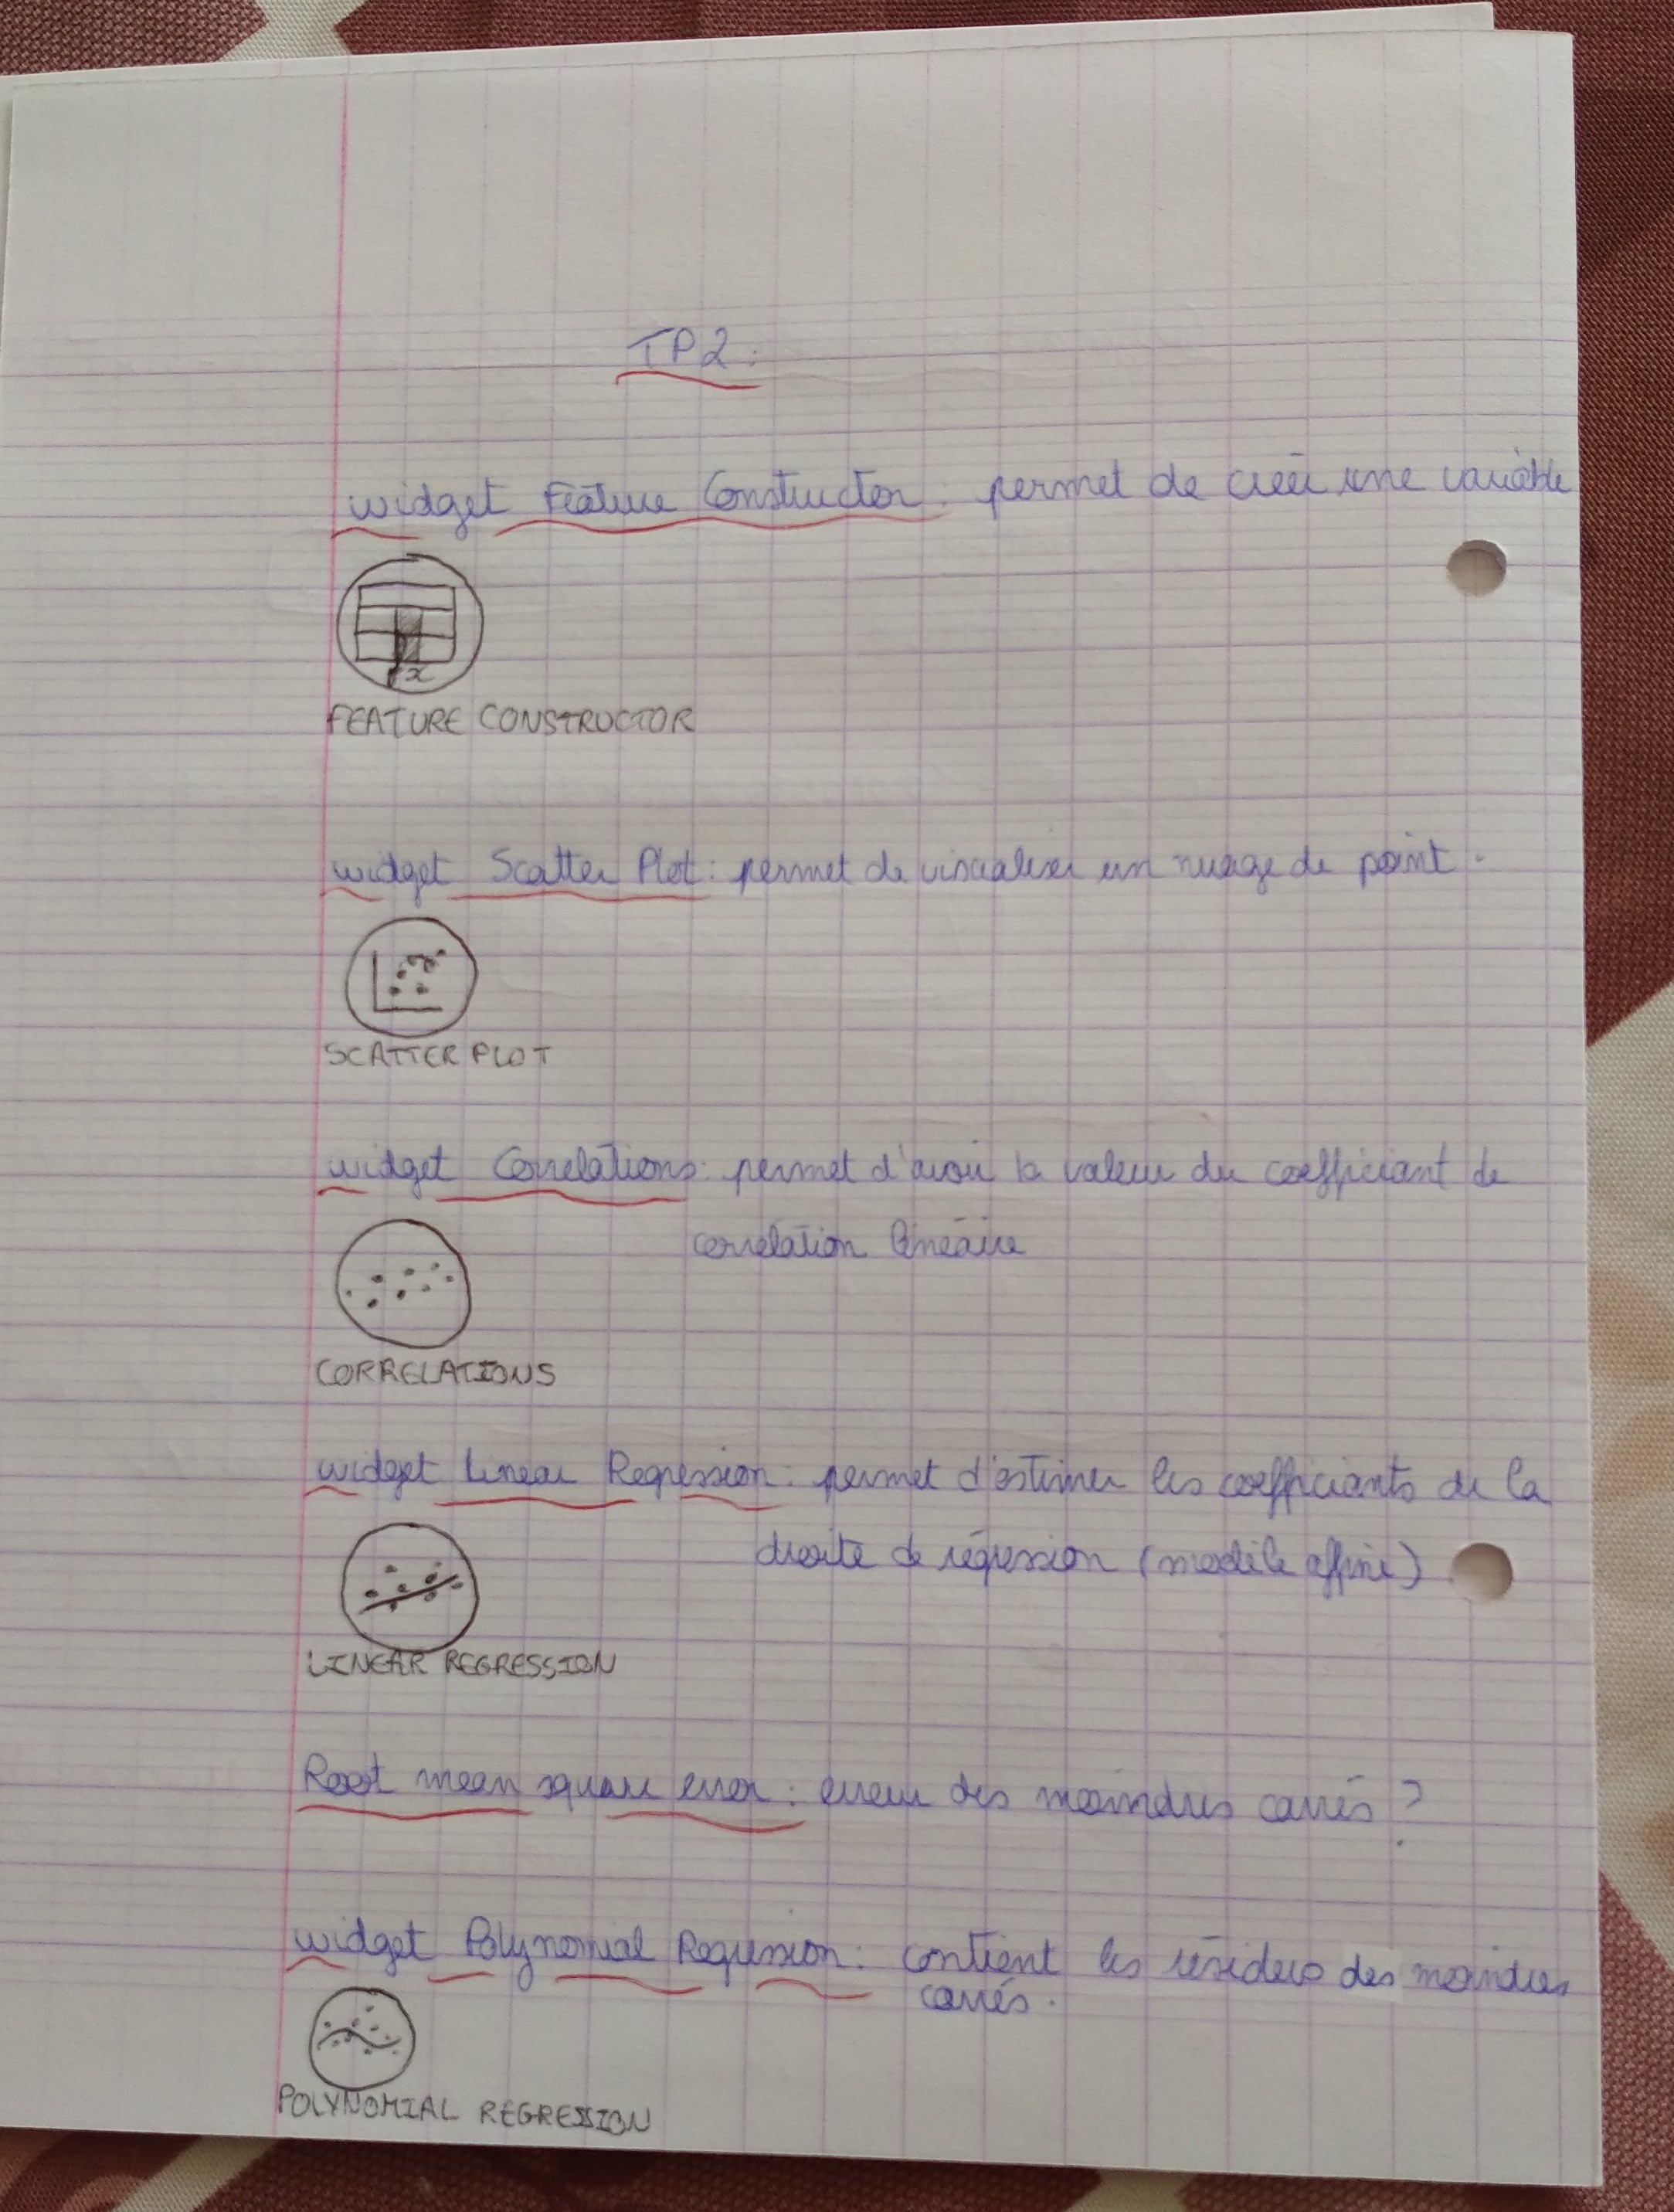 TP2:
widget Feature Constructor : permet de créer une variable
fx
FEATURE CONSTRUCTOR
widget Scatter Plot : permet de visualiser un nuage de point .
SCATTER PLOT
widget Correlations : permet d'avoir la valeur du coefficiant de
correlation linéaire
CORRELATIONS
widget Linear Regression : permet d'estimer les coefficiants de la
droite de régression (modèle affine)
LINEAR REGRESSION
Root mean square error : erreur des moindres carrés ?
widget Polynomial Regression : contient les résidus des moindres
carrés .
POLYNOMIAL REGRESSION